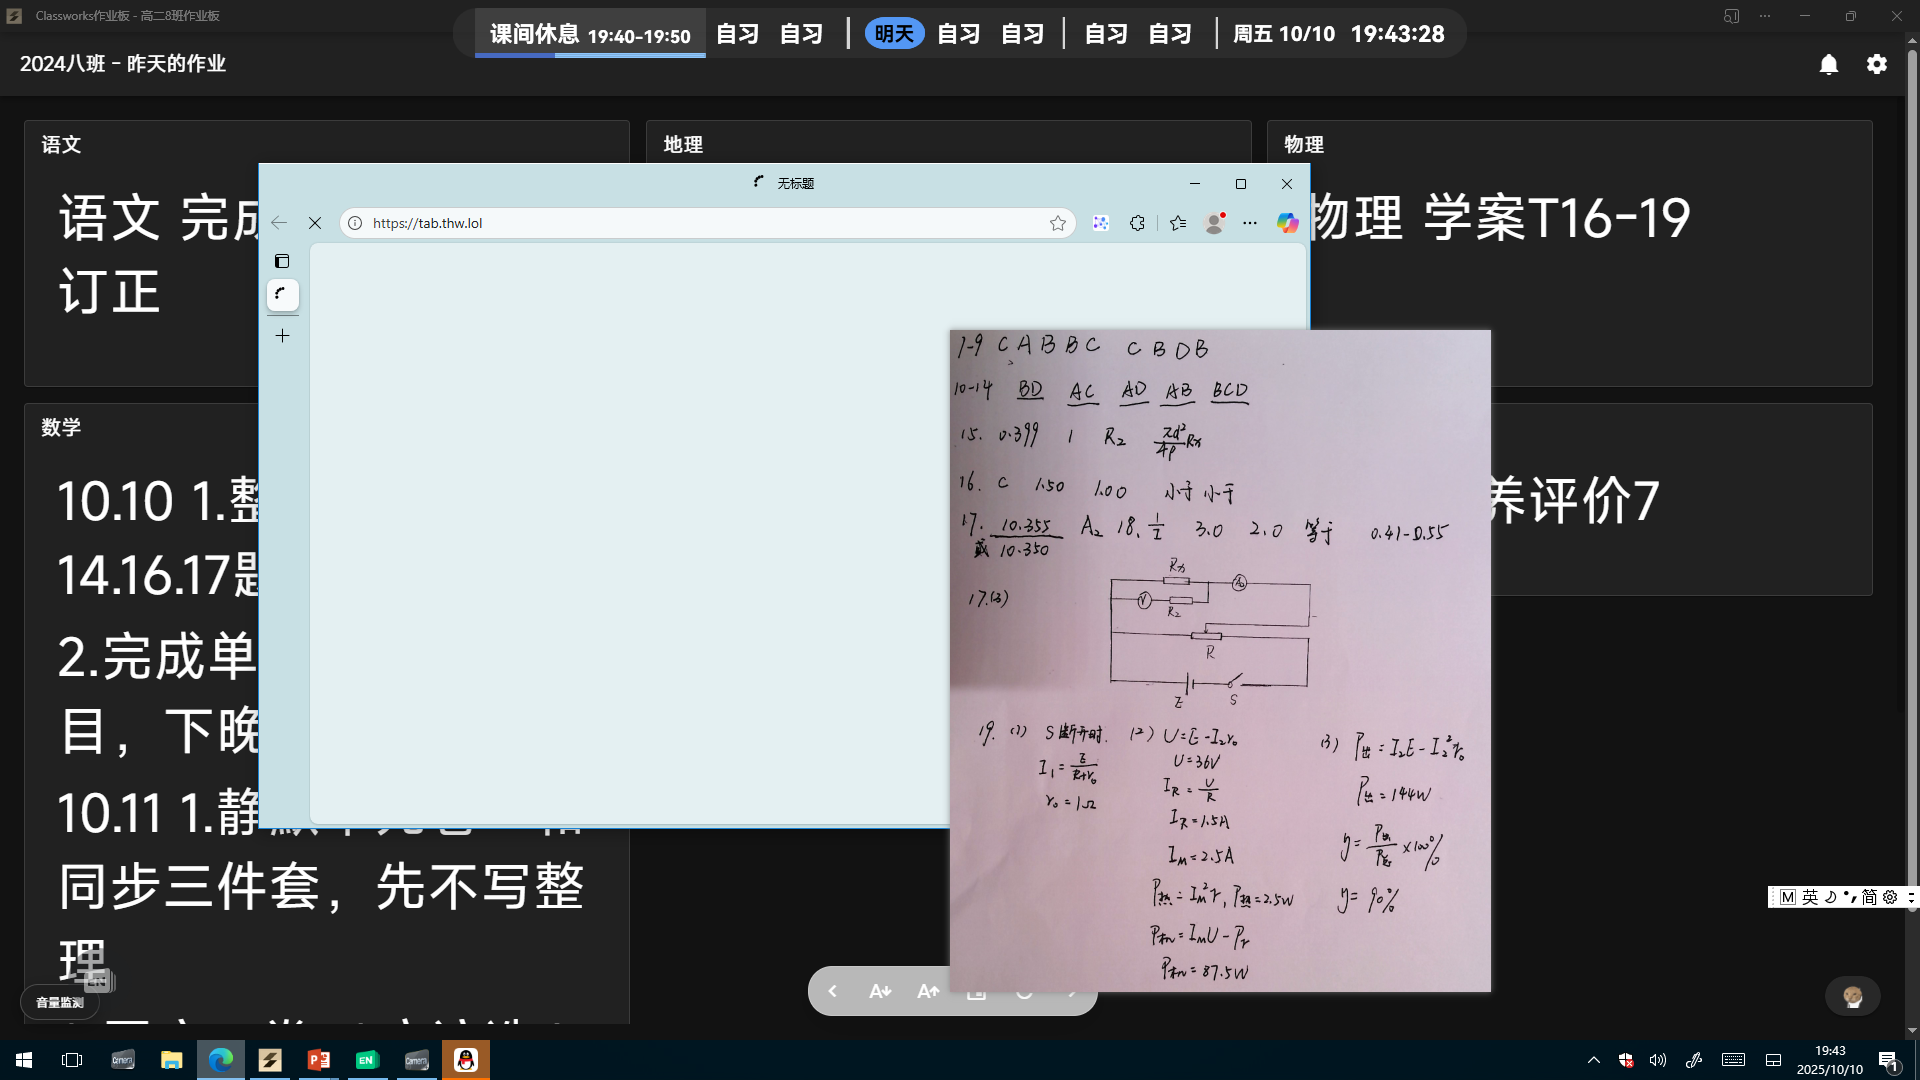 Classworks作业板 - 高二8班作业板
课间休息 19:40-19:50 自习 自习 明天 自习 自习 自习 自习 周五 10/10 19:43:28
2024八班 - 昨天的作业
语文
语文 完成
订正
地理
物理
物理 学案T16-19
无标题
https://tab.thw.lol
数学
10.10 1.整
14.16.17题
2.完成单
目，下晚
10.11 1.静
同步三件套，先不写整
理
养评价7
1-9 C A B B C C B D B
10-14 BD AC AD AB BCD
15. 0.399 1 R₂ πd²/4ρ Rx
16. C 1.50 1.00 小于 小于
17. 10.355 A₂ 18. 1/I 3.0 2.0 等于 0.41-0.55
或 10.350
17.(3)
Rx
A₀
V
R₂
R
E S
19. (1) S断开时.
I₁ = E/(R+r₀)
r₀ = 1Ω
(2) U=E-I₂r₀
U=36V
I_R = U/R
I_R=1.5A
I_M=2.5A
P热=I_M²r, P热=2.5W
P机=I_MU-Pr
P机=87.5W
(3) P出=I₂E-I₂²r₀
P出=144W
η=P出/P总×100%
η=90%
音量监测
EN
M 英 简
A A
EN
19:43
2025/10/10
1